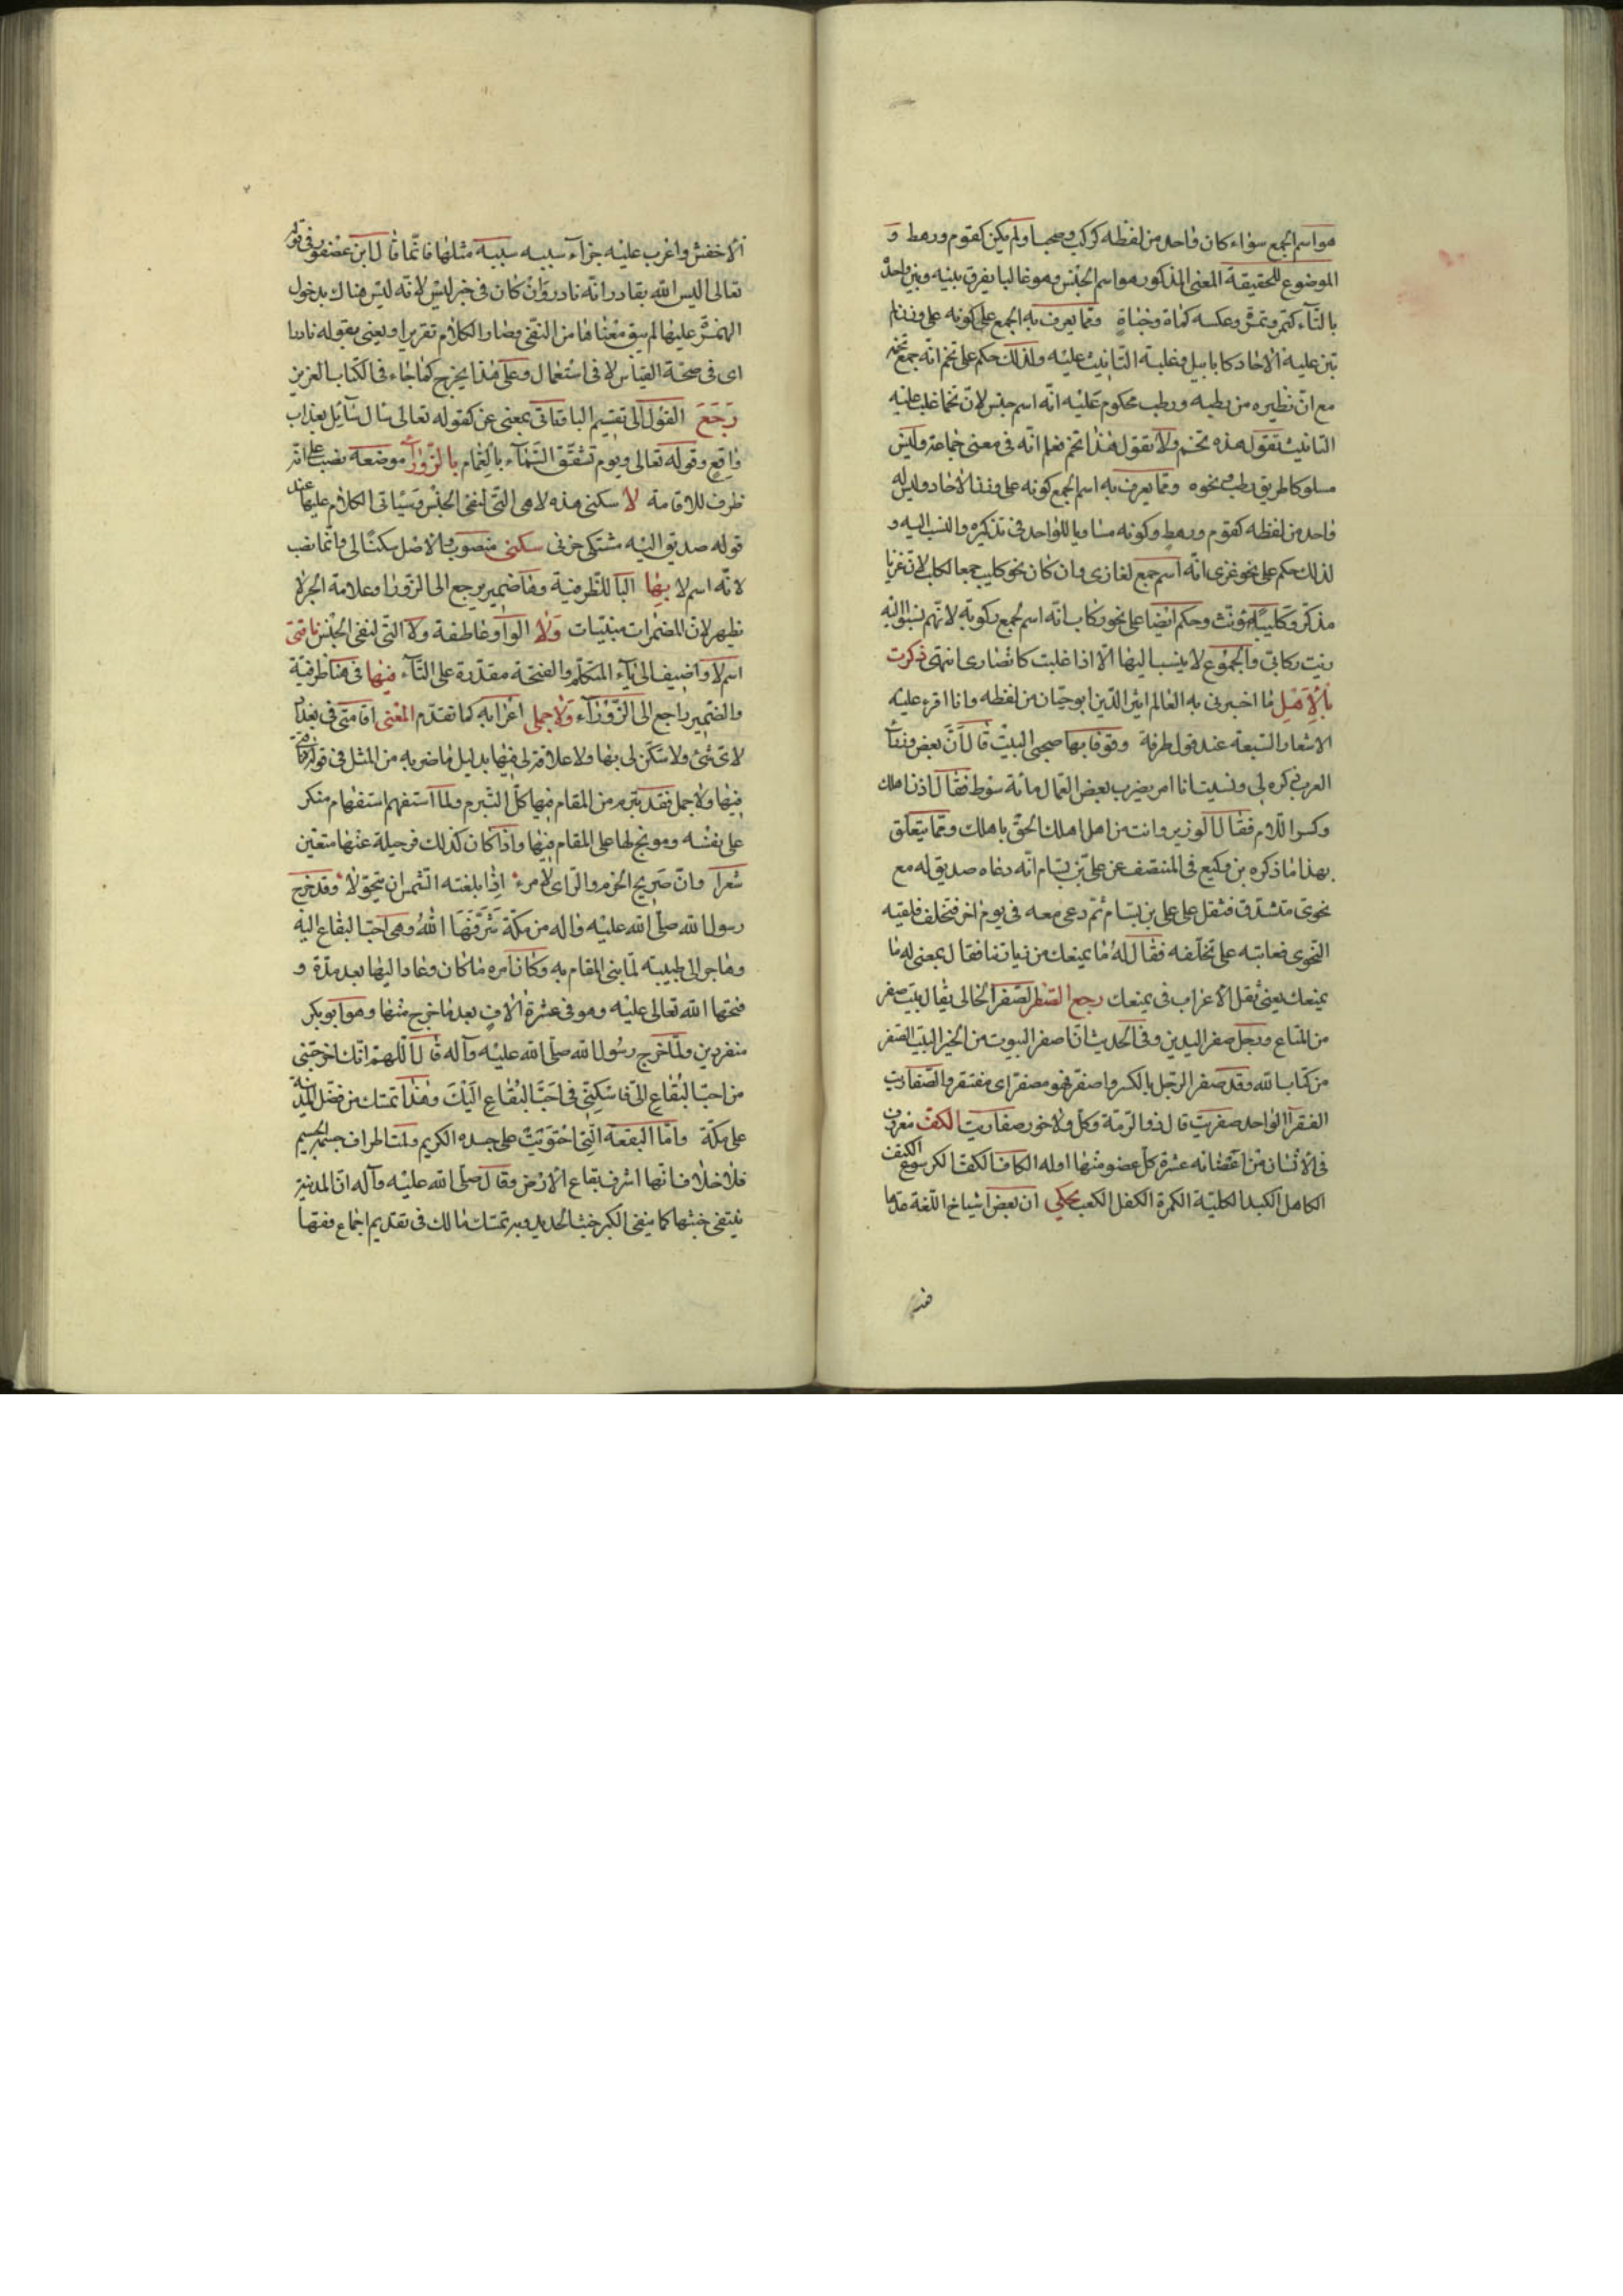 هو اسم الجمع سواء كان واحد من لفظه كركب وصحب او لم يكن كقوم ورهط و
الموضوع للحقيقة المعنى المذكور هو اسم الجنس وهو غالبا يفرق بينه وبين واحده
بالتاء كتمر وتمرة وعكسه كماة وخباة ومما يعرف به الجمع على كونه على وزن لم
تبن عليه الآحاد كابابيل وغلبة التانيث عليه ولذلك حكم على تخم انه جمع تخمة
مع ان نظيره من رطبه ورطب محكوم عليه انه اسم جنس لان تخما غلب عليه
التانيث تقول هذه تخم ولا تقول هذا تخم فعلم انه في معنى جماعة وليس
مسلوكا طريق رطب ونحوه ومما يعرف به اسم الجمع كونه على وزن الآحاد وليس له
واحد من لفظه كقوم ورهط وكونه مساويا للواحد في تذكيره والنسب اليه و
لذلك حكم على نحو غزى انه اسم جمع لغازى وان كان نحو كليب جمعا لكلب لان غزيا
مذكر وكليبا مؤنث وحكم ايضا على نحو ركاب بانه اسم لجمع ركوبة لانهم نسبوا اليه
زيت ركابي والجموع لا ينسب اليها الا اذا غلبت كانصارى انتهى ذكرت
بالاهل ما اخبرنى به العالم اثير الدين ابو حيان من لفظه وانا اقرء عليه
الاشعار السبعة عند قول طرفة وقوفا بها صحبى البيت قال ان بعض وزراء
العرب ذكره لى ونسيت انا امر بضرب بعض العمال مائة سوط فقال اذن اهلك
وكسر اللام فقال الوزير وانت من اهل اهلك الحق باهلك ومما يتعلق
بهذا ما ذكره بن وكيع في المنتصف عن على بن بسام انه دعاه صديق له مع
نحوى متشدق فثقل على على بن بسام ثم دعى معه في يوم اخر فتخلف فلقيه
النحوى فعاتبه على تخلفه فقال له ما يمنعك من زياتنا فقال يمعنى له ما
يمنعك يعنى ثقل الاعراب في يمنعك رجع الصفر الصفر الخالى يقال بيت صفر
من المتاع ورجل صفر اليدين وفي الحديث ان اصفر البيوت من الخير البيت الصفر
من كتاب الله وقد صفر الرجل بالكسر واصفر فهو مصفر اى مفتقر والصفاريت
الفقراء الواحد صفريت قال ذو الرمة وكل ولا خور صفاريت الكف معروف
في الانسان من اعضائه عشرة كل عضو منها اوله الكاف الكف الكرسوع الكتف
الكاهل الكبد الكلية الكمرة الكفل الكعب يحكى ان بعض اشياخ اللغة عدها
الاخفش واغرب عليه جزاء سيئة سيئة مثلها فانما قال ابن عصفور في قوله
تعالى اليس الله بقادر انه نادر وان كان في خبر ليس لانه ليس هناك بدخول
الهمزة عليها لم يبق معناها من النفى وصار الكلام تقريرا ويعنى بقوله نادرا
اى في صحة القياس لا في استعمال وعلى هذا يخرج كما جاء في الكتاب العزيز
رجع القول الى تقسيم الباء فتاتى بمعنى عن كقوله تعالى سال سائل بعذاب
واقع وقوله تعالى ويوم تشقق السماء بالغمام بالزوراء موضعه نصب على انه
ظرف للاقامة لا سكنى هذه لا هى التى لنفى الجنس وسياتى الكلام عليها عند
قوله صديق اليه مشتكى حزنى سكنى منصوب والاصل سكنا لى وانما نصب
لانه اسم لا بها الباء للظرفية وها ضمير يرجع الى الزورا وعلامة الجر لا
تظهر لان المضمرات مبنيات ولا الواو عاطفة ولا التى لنفى الجنس ناقتى
اسم لا واضيف الى ياء المتكلم والفتحة مقدرة على التاء فيها في هنا ظرفية
والضمير راجع الى الزوراء ولا جملى اعرابه كما تقدم المعنى اقامتى في بغداد
لاى شئ ولا سكن لى بها ولا علاقة لى فيها بدليل ما ضربه من المثل في قوله ولا ناقتى
فيها ولا جمل فقد تبرم من المقام فيها كل التبرم ولما استفهم استفهام منكر
على نفسه وموبخ لها على المقام فيها واذا كان كذلك فرحيلة عنها متعين
شعرا وان صريح الحزم والراى لامرء اذا بلغته الشمس ان يتحولا وقد خرج
رسول الله صلى الله عليه واله من مكة شرفها الله وهى احب البقاع اليه
وهاجر الى طيبة لما نبى المقام به وكان امره ما كان وعاد اليها بعد مدة و
فتحها الله تعالى عليه وهو في عشرة الاف بعد ما خرج منها وهو ابو بكر
منفردين ولما خرج رسول الله صلى الله عليه وآله قال اللهم انك اخرجتنى
من احب البقاع الى فاسكنى في احب البقاع اليك وهذا تمسك من فضل المدينة
على مكة واما البقعة التى احتوت على جسده الكريم ولمت اطراف جسمه الجسيم
فلا خلاف انها اشرف بقاع الارض وقال صلى الله عليه وآله ان المدينة
ينتفى خبثها كما ينفى الكير خبث الحديد وبه تمسك مالك في تقديم اجماع فقها